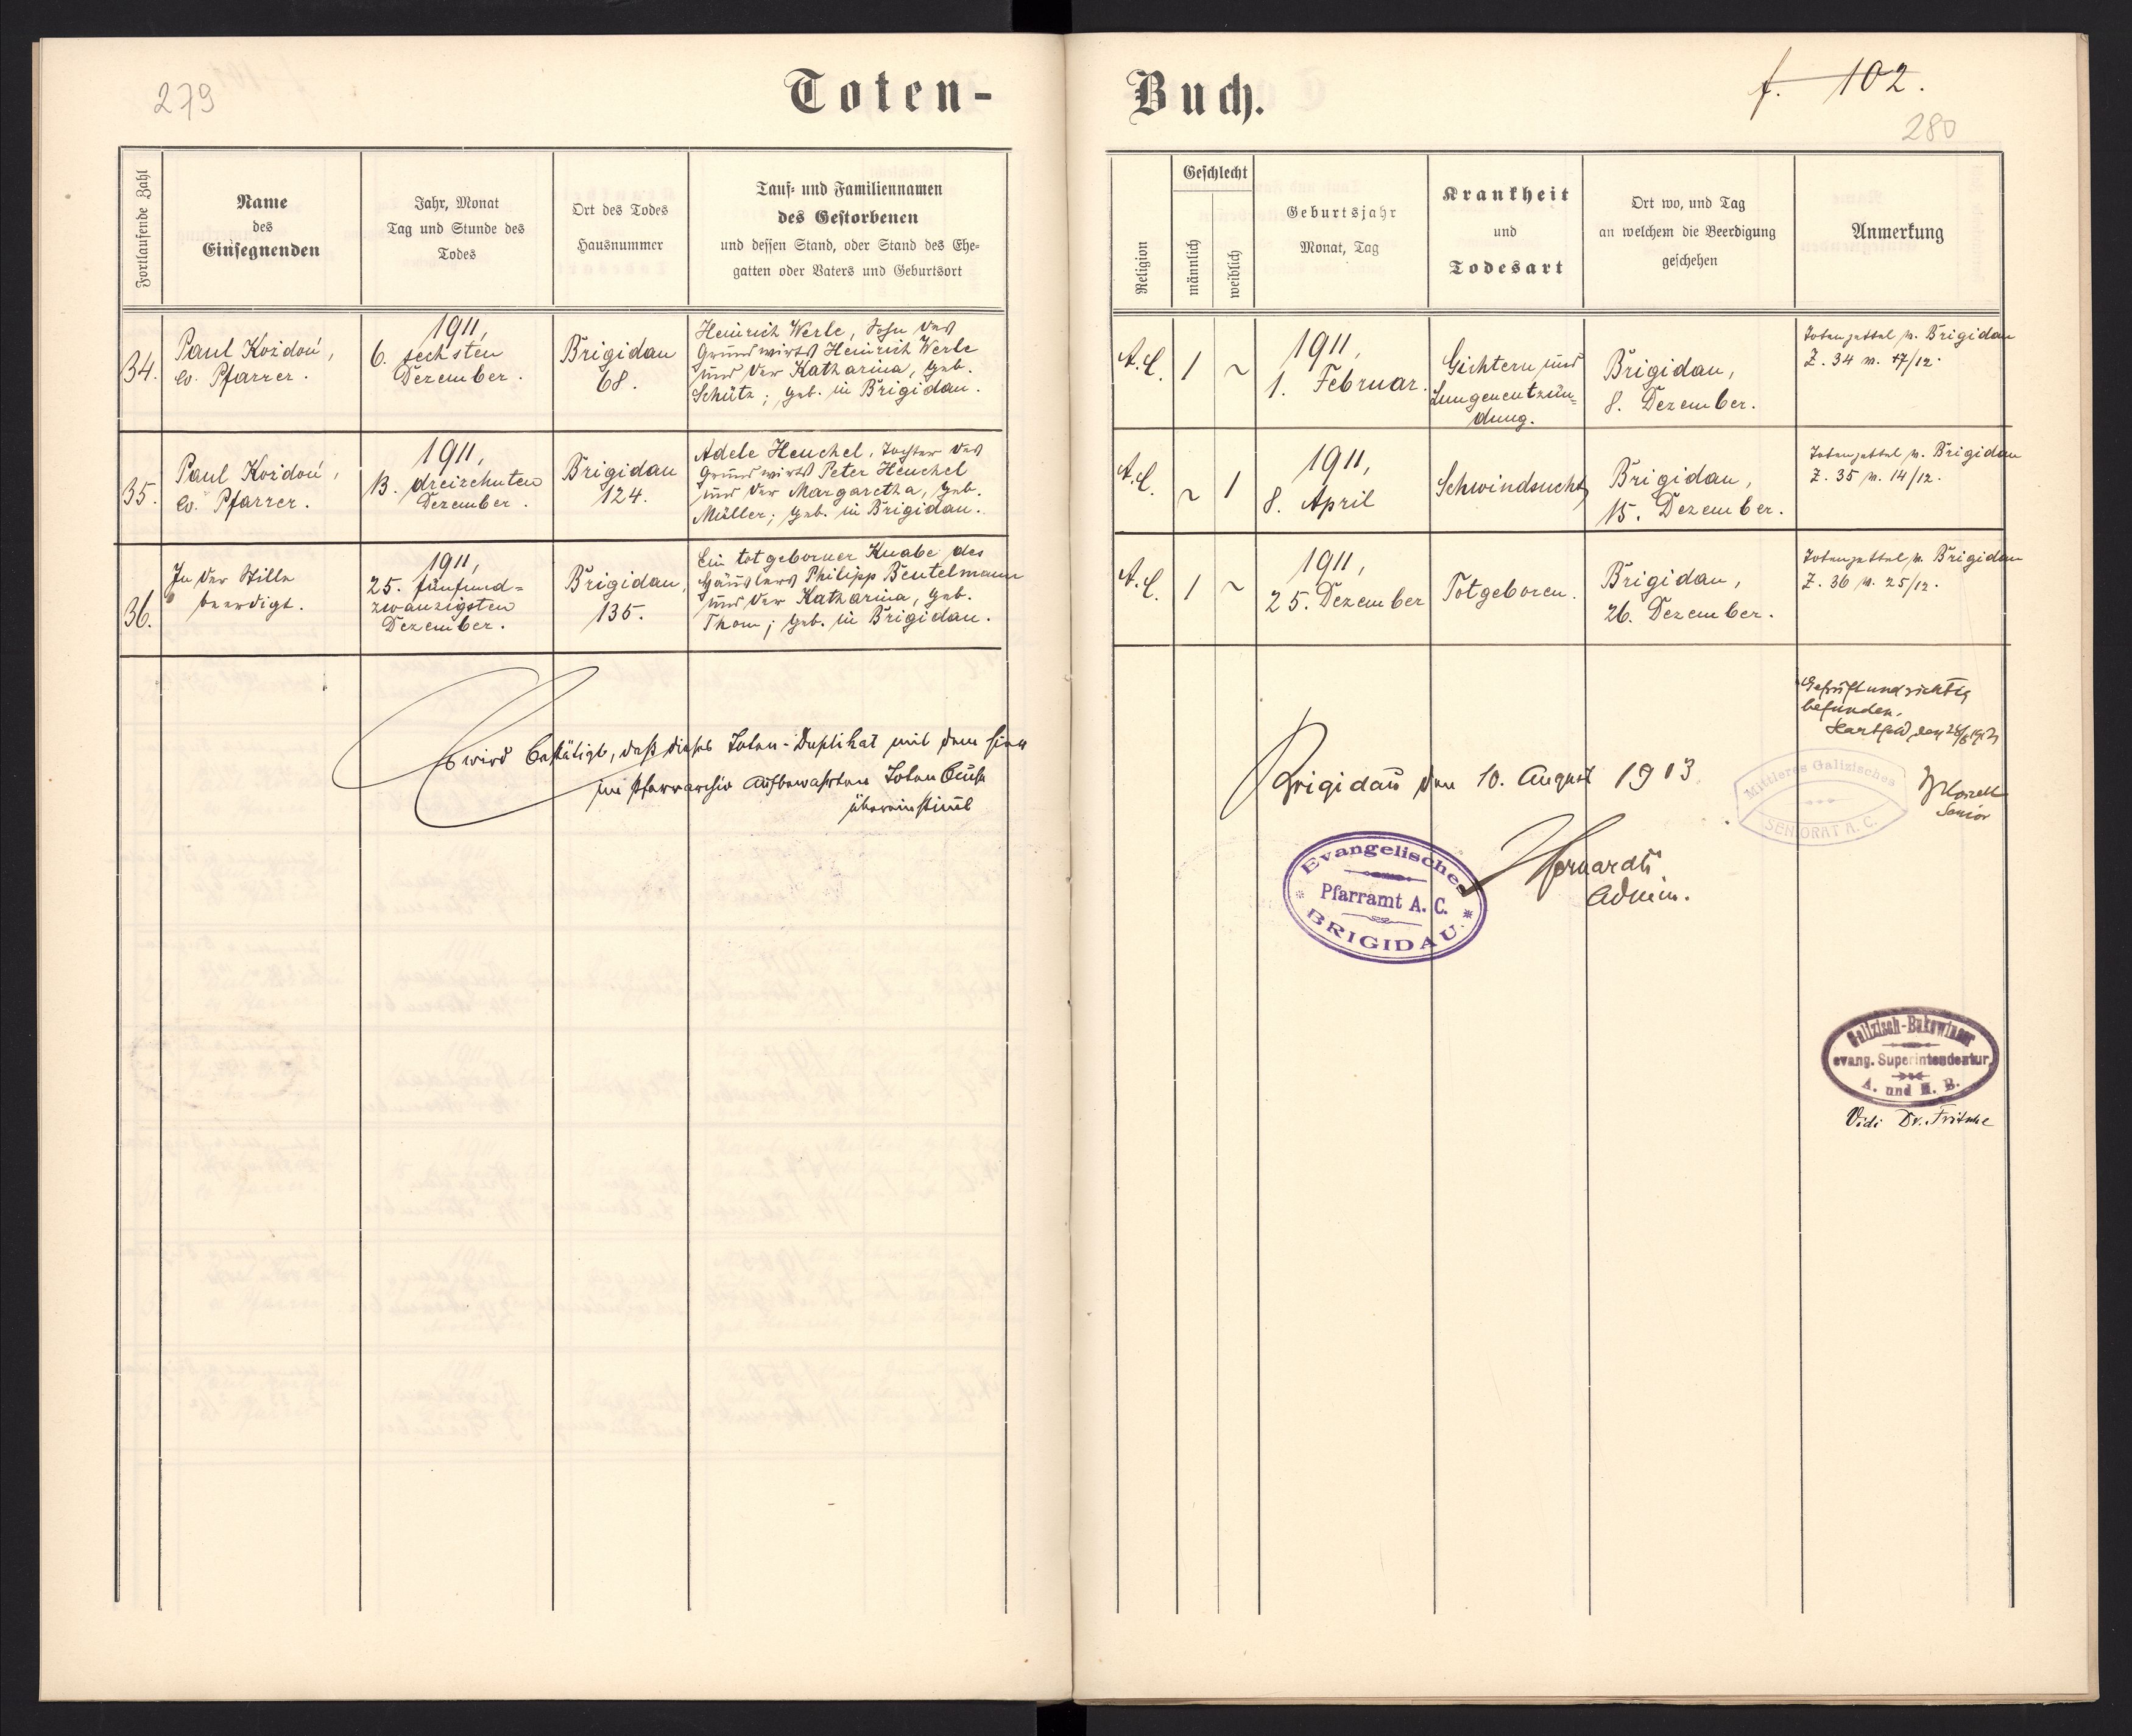 279
Toten-
Buch.
f. 102.
280
Fortlaufende Zahl
Name
des
Einsegnenden
Jahr, Monat
Tag und Stunde des
Todes
Ort des Todes
Hausnummer
Tauf- und Familiennamen
des Gestorbenen
und dessen Stand, oder Stand des Ehe-
gatten oder Vaters und Geburtsort
Religion
Geschlecht
männlich
weiblich
Geburtsjahr
Monat, Tag
Krankheit
und
Todesart
Ort wo, und Tag
an welchem die Beerdigung
geschehen
Anmerkung
34.
Paul Kożdoń,
ev. Pfarrer.
1911,
6. sechsten
Dezember.
Brigidau
68.
Heinrich Werle, Sohn des
Grundwirts Heinrich Werle
und der Katharina, geb.
Schütz; geb. in Brigidau.
A.C.
1
~
1911,
1. Februar.
Gichtern und
Lungenentzün=
dung.
Brigidau,
8. Dezember.
Totenzettel v. Brigidau
Z. 34 v. 7/12.
35.
Paul Kożdoń,
ev. Pfarrer.
1911,
13. dreizehnten
Dezember.
Brigidau
124.
Adele Heuchel, Tochter des
Grundwirts Peter Heuchel
und der Margaretha, geb.
Müller; geb. in Brigidau.
A.C.
~
1
1911,
8. April
Schwindsucht
Brigidau,
15. Dezember.
Totenzettel v. Brigidau
Z. 35 v. 14/12.
36.
In der Stille
beerdigt.
1911,
25. fünfund=
zwanzigsten
Dezember.
Brigidau,
135.
Ein totgeborner Knabe des
Häuslers Philipp Beutelmann
und der Katharina, geb.
Thom; geb. in Brigidau.
A.C.
1
~
1911,
25. Dezember
Totgeboren.
Brigidau,
26. Dezember.
Totenzettel v. Brigidau
Z. 36 v. 25/12.
Es wird bestätigt, daß dieses Toten-Duplikat mit dem hier
im Pfarrarchiv aufbewahrten Totenbuche
übereinstimmt
Brigidau den 10. August 1913
Admin.
Evangelisches
Pfarramt A. C.
BRIGIDAU.
Geprüft und richtig
befunden.
Mittleres Galizisches
SENIORAT A. C.
Senior
Galizisch-Bukowiner
evang. Superintendentur
A. und H. B.
Vidi Dr. Fritsche